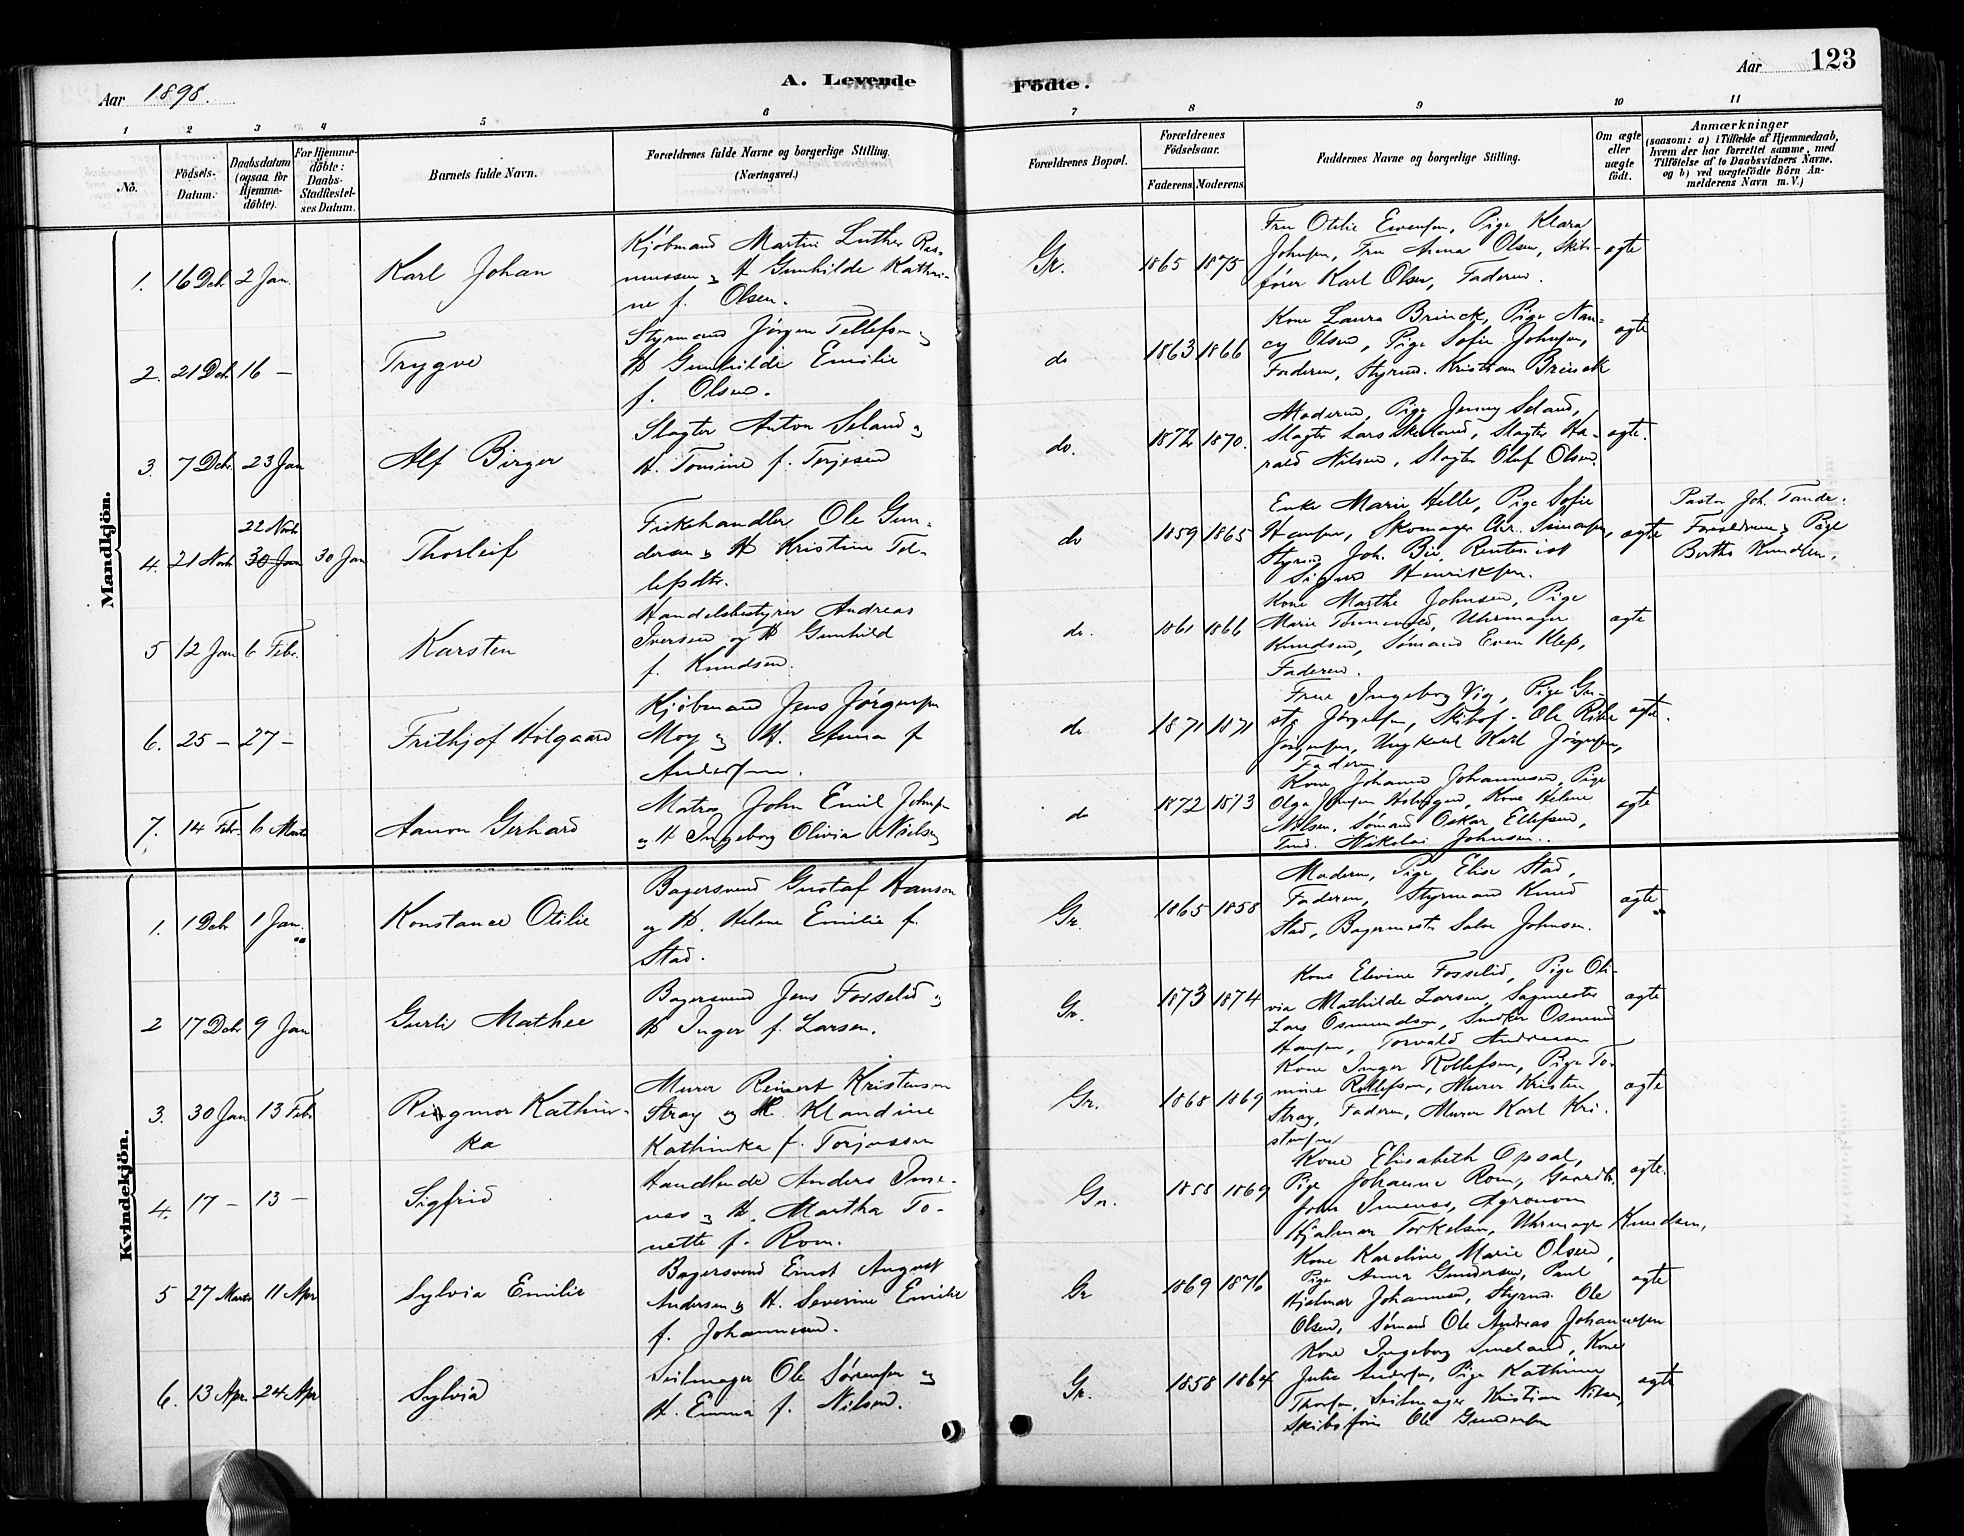 Aar 1898.
A. Levende
Födte.
Aar
123
1
2
3
4
5
6
7
8
9
10
11
No.
Födsels-
Datum.
Daabsdatum
(ogsaa for
Hjemme-
döbte).
For Hjemme-
döbte:
Daabs-
Stadfæstel-
ses Datum.
Barnets fulde Navn.
Forældrenes fulde Navne og borgerlige Stilling.
(Næringsvei.)
Forældrenes Bopæl.
Forældrenes
Födselsaar.
Faderens.
Moderens.
Faddernes Navne og borgerlige Stilling.
Om ægte
eller
uægte
födt.
Anmærkninger
(saasom: a) i Tilfælde af Hjemmedaab,
hvem der har forrettet samme, med
Tilföielse af to Daabsvidners Navne.
og b) ved uægtefödte Börn An-
melderens Navn m.V.)
Mandkjön.
1. 16 Deb. 2 Jan. Karl Johan
Kjøbmand Martin Luther Ras-
mussen og H Gunhilde Kathri-
ne f. Olsen.
Gr. 1865 1875
Fru Otilie Evensen, Pige Klara
Johnsen, Fru Anna Olsen, Skibs-
fører Karl Olsen, Faderen.
ægte
2. 21 Deb. 16 — Trygve
Styrmand Jørgen Tellefsen og
H Gunhilde Emilie
f. Olsen.
do 1863 1866
Kone Laura Brinck, Pige Nan-
cy Olsen, Pige Sofie Johnsen,
Faderen, Styrmd. Kristian Brinck
ægte
3. 7 Deb. 23 Jan Alf Birger
Slagter Anton Seland og
H. Tomine f. Terjesen
do. 1872 1870.
Moderen, Pige Jenny Seland,
Slagter Lars Skeiland, Slagter Ha-
rald Nilsen, Slagter Oluf Olsen.
ægte.
4. 21 Novb 22 Novb 30 Jan 30 Jan Thorleif
Fiskehandler Ole Gun-
dersen og H Kristine Tel-
lefsdtr.
do 1859 1865
Enke Marie Helle, Pige Sofie
Hansen, Skomager Chr. Simonsen,
Styrmd Joh. Bie, Rentenist
Sigurd Henriksen.
ægte
Pastor Joh. Tande.
Forældrene og Pige
Bertha Knudsen.
5 12 Jan 6 Febr. Karsten
Handelsbestyrer Andreas
Iversen og H Gunhild
f. Knudsen.
do. 1861 1866
Kone Marthe Johnsen, Pige
Marie Tønnevold, Uhrmager
Knudsen, Sømand Even Klep,
Faderen.
ægte
6. 25 — 27 — Frithjof Holgaard
Kjøbmand Jens Jørgensen
Moy og H. Anna f.
Andersen.
do 1871 1871
Frue Ingeborg Vig, Pige Gu-
sta Jørgensen, Skibsf. Ole Riber
Jørgensen, Ungkarl Karl Jørgensen,
Faderen.
ægte.
7. 14 Febr. 6 Marts Aanon Gerhard
Matros John Emil Johnsen
og H Ingeborg Olivia Nielsen
do 1872 1873
Kone Johanne Johannesen, Pige
Olga Jensen Holmgen, Kone Helene
Nilsen, Sømand Oskar Ellefsen,
Tmd. Nikolai Johnsen.
ægte
Kvindekjön.
1. 1 Deb 1 Jan. Konstance Otilie
Bagersvend Gustaf Hanson
og H. Helene Emilie f.
Stad.
Gr. 1865 1858
Moderen, Pige Elise Stad,
Faderen, Styrmand Knud
Stad, Bagermester Salve Johnsen.
ægte
2 17 Deb 9 Jan Gurli Mathee
Bagersvend Jens Fosselid og
H Inger f. Larsen.
Gr. 1873 1874
Kone Elevine Fosselid, Pige Oli-
via Mathilde Larsen, Sagmester
Lars Osmundsen, Snedker Osmund
Hansen, Torvald Andresen
ægte
3. 30 Jan 13 Feb Ringmor Kathin-
ka
Murer Reinert Kristensen
Stray og H. Klandine
Kathinka f. Torjussen
Gr. 1868 1869
Kone Inger Rollefsen, Pige To-
mine Rollefsen, Murer Kristen
Stray, Faderen, Murer Karl Kri-
stensen
ægte
4. 17 — 13 — Sigfrid
Handlende Anders Ime-
nes og H. Martha To-
nette f. Rom.
Gr. 1858 1869
Kone Elisabeth Opsal,
Pige Johanne Rom, Gaardbr.
John Imenes, Agronom
Hjalmar Torkelsen, Uhrmager Knudsen,
ægte.
5 27 Marts 11 Apr Sylvia Emilie
Bagersvend Ernst August
Andersen og H. Severine Emilie
f. Johannesen.
Gr 1869 1876
Kone Karoline Marie Olsen,
Pige Anna Gundersen, Paul
Hjalmar Johannesen, Styrmd. Ole
Olsen, Sømand Ole Andreas Johannesen
ægte
6. 13 Apr. 24 Apr Sylvia
Seilmager Ole Sørensen og
H. Emma f. Nilsen.
Gr. 1858 1864
Kone Ingeborg Smeland, Kone
Julie Andersen, Pige Kathinca
Thorsen, Seilmager Kristian Nilsen,
Skibsfører Ole Gundersen
ægte